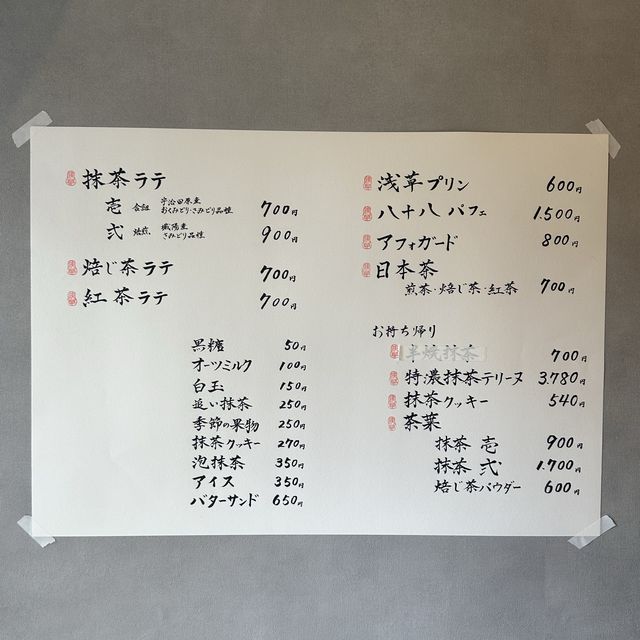 抹茶ラテ
壱 宇治田原産
おくみどり・さみどり品種 700円
弐 城陽産
さみどり品種 900円
焙じ茶ラテ 700円
紅茶ラテ 700円
黒糖 50円
オーツミルク 100円
白玉 150円
追い抹茶 250円
季節の果物 250円
抹茶クッキー 270円
泡抹茶 350円
アイス 350円
バターサンド 650円
浅草プリン 600円
八十八パフェ 1.500円
アフォガード 800円
日本茶
煎茶・焙じ茶・紅茶 700円
お持ち帰り
半焼抹茶 700円
特濃抹茶テリーヌ 3.780円
抹茶クッキー 540円
茶葉
抹茶 壱 900円
抹茶 弐 1.700円
焙じ茶パウダー 600円